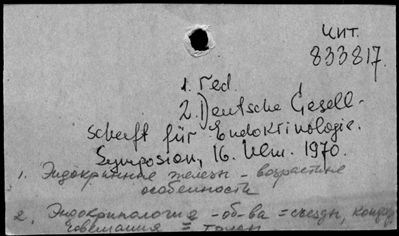 чит.
833817.
1. Ted.
2. Deutsche Gesell-
schaft für Endokrinologie.
Symposion, 16. Ulm. 1970.
1. Эндокринные железы - возрастные
особенности
2. Эндокринология - об-ва = съезды,
совещания =